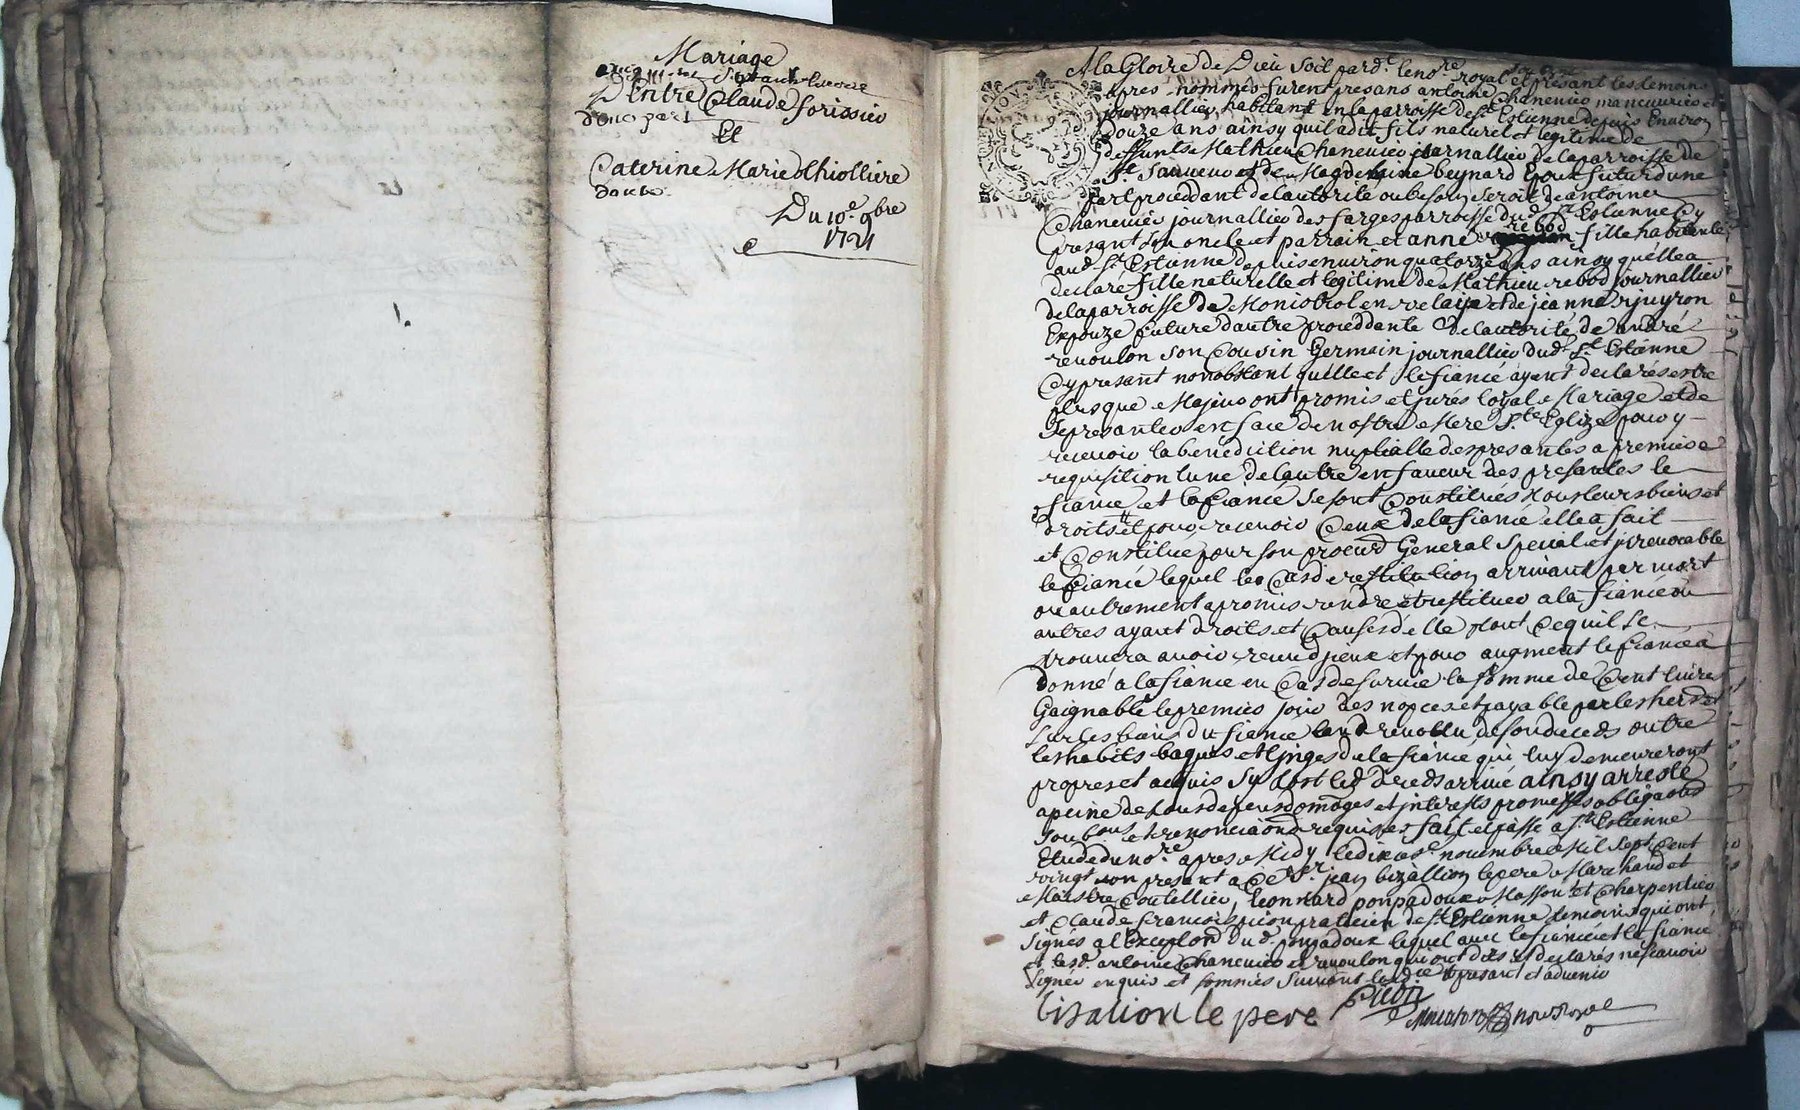 Mariage
D'Entre Claude forissier
d'une part
Et
Caterine Marie Thiolliere
dautre
Du 10e. 9bre
1721
A la Gloire de Dieu soit pard.t le nore royal et presant les temoins
apres nommés furent presans antoine Chanevier manouvrier et
journallier habitant en la parroisse de St. Estienne depuis Environ
douze ans ainsy quil a dit fils naturel et legitime de
deffunts Mathieu Chanevier journallier de la parroisse de
St. Sauveur et de Magdelaine beynard Epoux futur d'une
part proceddant de l'autorité ou besoin seroit de antoine
Chanevier journallier des farges parroisse dud. St. Estienne Cy
presant son oncle et parrain et anne rebod fille habitante
aud. St. Estienne depuis environ quatorze ans ainsy quelle a
declaré fille naturelle et legitime de Mathieu rebod journallier
de la parroisse de Monistrol en velaix et de jeanne
Expouze future d'autre proceddante de l'autorité de andré
revoulon son Cousin Germain journallier dud. St. Estienne
Cy presant nonobstant quelle et le fiancé ayent declarés estre
plus que Majeur ont promis et jurés loyal Mariage et de
se presanter en face de nostre Mere Ste. Eglize pour y
recevoir la benediction nuptialle des presantes a premiere
requisition lune de lautre en faveur des presantes le
fiancé et la fiancé se sont Constitués tous leurs biens et
droits et pour recevoir Ceux de la fiancé elle a fait
et Constitué pour son procurr General Special et jrrevocable
le fiancé lequel le Cas de restitution arrivant par mort
ou autrement a promis rendre et restituer a la fiancé ou
autres ayant droits et Causes d'elle tout Ce quil se
trouvera avoir receu d'jceux et pour augment le fiancé a
donné a la fiancé en Cas de survie la somme de Cent livres
Gaignable le premier jour des nopces et payable par les hers et
sur les biens du fiancé l'an revollu de son deceds outre
les habits bagues et linges de la fiancé qui luy demeureront
propres et acquis sy tost led. deceds arrivé ainsy arresté
a peine de tous depens domages et jnterests promesses obligaons
soubons et renonciaons requises fait et passé a St. Estienne
Etude du nore. apres Midy le dixe. novembre Mil Sept Cent
vingt un presant a Ce Sr. jean bizallion le pere Marchand et
Maistre Coutellier, leonnard pompadoux Masson et Charpentier
et Claude francois picon praticien de St. Estienne temoins qui ont
signés a l'exception dud. pompadoux lequel avec le fiancé et la fiancé
et lesd. antoine Chanevier et revoulon qui ont dits et declarés ne scavoir
signer enquis et sommés suivant le presant et advenir
bisalion le pere